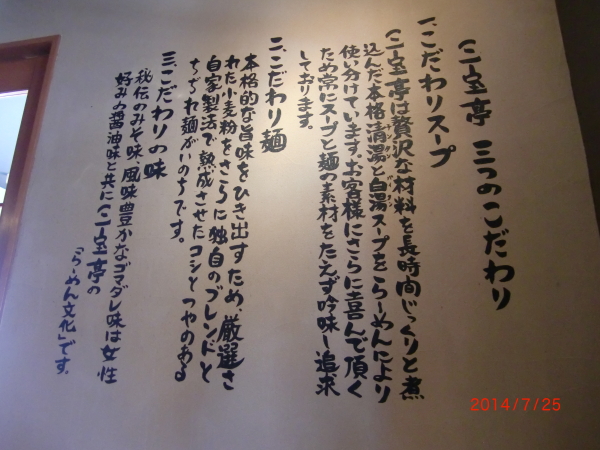 三宝亭 三つのこだわり
一、こだわりスープ
三宝亭は贅沢な材料を長時間じっくりと煮
込んだ本格清湯と白湯スープをらーめんにより
使い分けています。お客様にさらに喜んで頂く
ため常にスープと麺の素材をたえず吟味し追求
しております。
二、こだわり麺
本格的な旨味をひき出すため、厳選さ
れた小麦粉をさらに独自のブレンドと
自家製法で熟成させたコシとつやのある
ちぢれ麺がいのちです。
三、こだわりの味
秘伝のみそ味、風味豊かなゴマダレ味は女性
好みの醤油味と共に三宝亭の
「らーめん文化」です。
2014/7/25